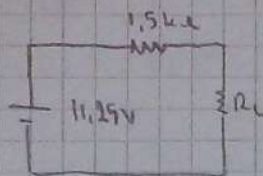 1,5kΩ
11,25V
RL